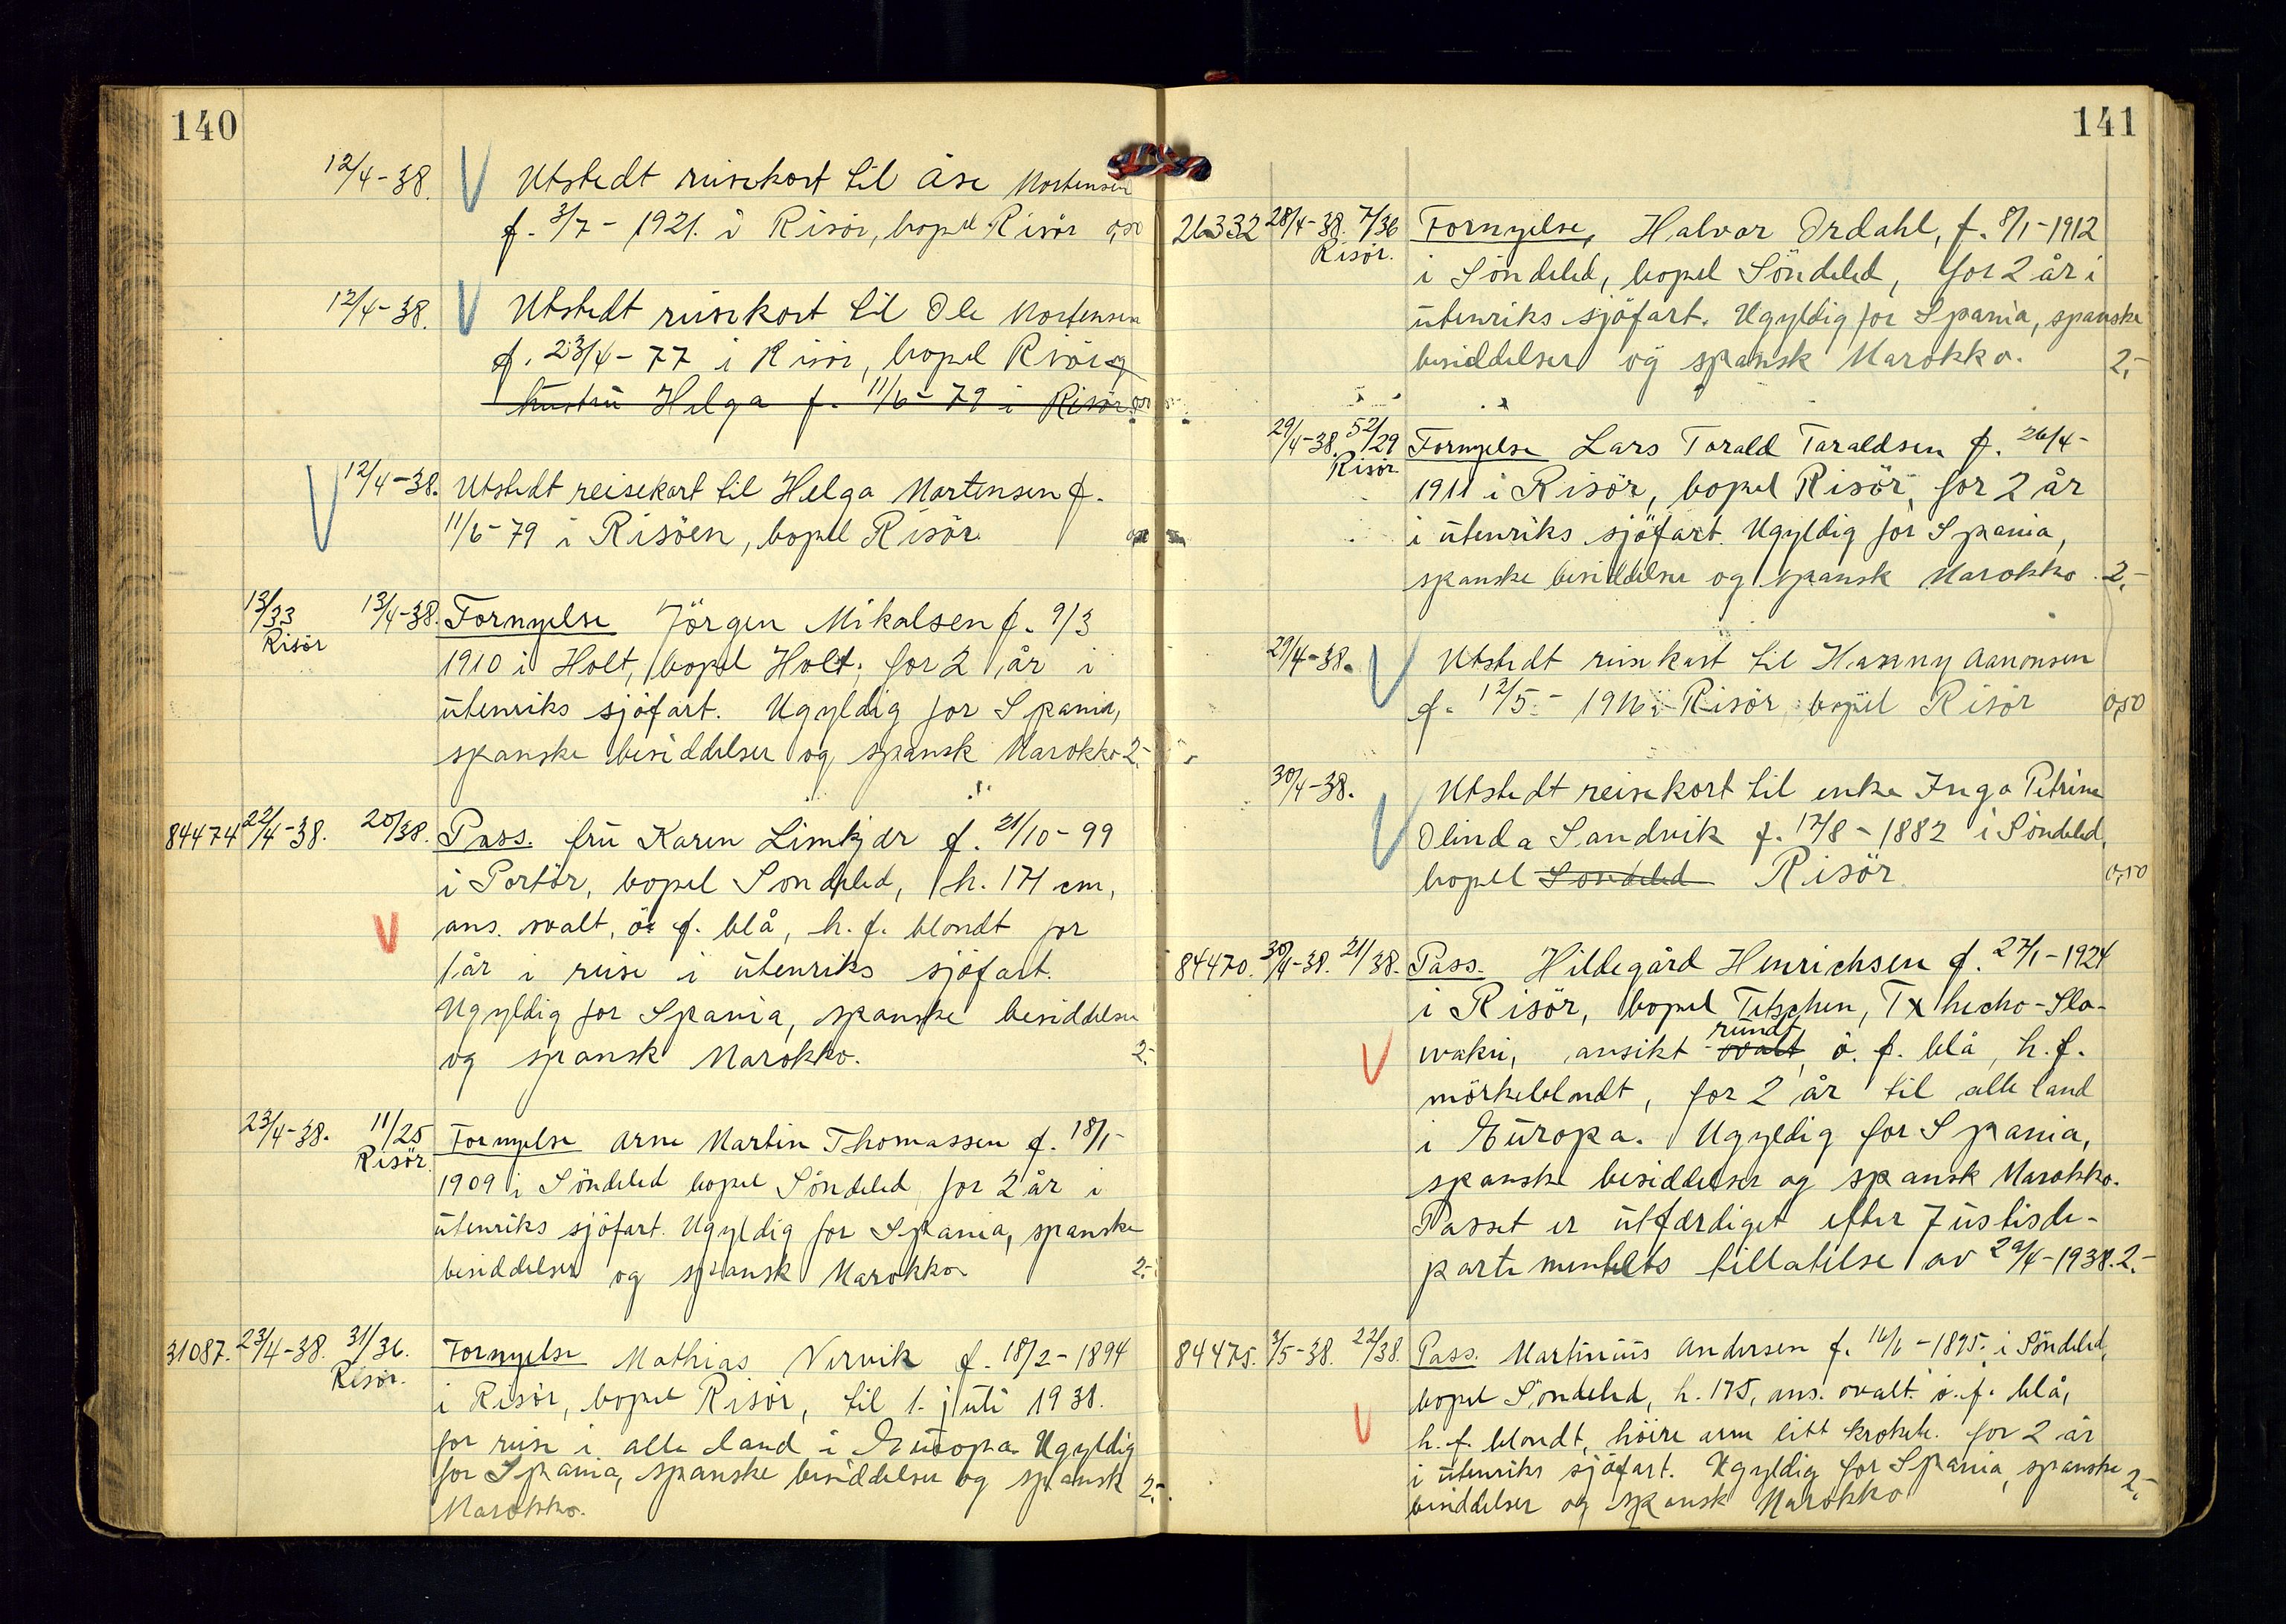 140
12/4-38. V Utstedt reisekort til Åse Mortensen
f. 3/7 - 1921. i Risör, bopel Risör 0,50
12/4-38. V Utstedt reisekort til Ole Mortensen
f. 23/4 - 77 i Risör, bopel Risör og
hustru Helga f. 11/6 - 79 i Risör 0,50
V 12/4-38. Utstedt reisekort til Helga Mortensen f.
11/6 - 79 i Risöen, bopel Risör.
13/33 13/4-38. Fornyelse Jörgen Mikalsen f. 9/3
Risör
1910 i Holt, bopel Holt, for 2 år i
utenriks sjöfart. Ugyldig for Spania,
spanske besiddelser og spansk Marokko 2.-
84474 22/4-38. 20/38. Pass. fru Karen Limkjær f. 21/10 - 99
i Portör, bopel Söndeled, h. 171 cm,
V ans. ovalt, ö. f. blå, h. f. blondt for
1 år i reise i utenriks sjöfart.
Ugyldig for Spania, spanske besiddelser
og spansk Marokko. 2.-
23/4-38. 11/25 Fornyelse Arne Martin Thomassen f. 18/1-
Risör.
1909 i Söndeled bopel Söndeled for 2 år i
utenriks sjöfart. Ugyldig for Spania, spanske
besiddelser og spansk Marokko 2.-
31087. 23/4-38. 31/36. Fornyelse Mathias Vervik f. 18/2 - 1894
Risör.
i Risör, bopel Risör, til 1. juli 1938.
for reise i alle land i Europa. Ugyldig
for Spania, spanske besiddelser og spansk 2.-
Marokko.
141
26332 28/4-38. 7/36 Fornyelse, Halvor Ordahl, f. 8/1-1912
Risör.
i Söndeled, bopel Söndeled, for 2 år i
utenriks sjöfart. Ugyldig for Spania, spanske
besiddelser og spansk Marokko. 2,-
29/4-38. 52/29 Fornyelse Lars Torald Taraldsen f. 26/4-
Risör
1911 i Risör, bopel Risör, for 2 år
i utenriks sjöfart. Ugyldig for Spania,
spanske besiddelser og spansk Marokko. 2.-
29/4-38. V Utstedt reisekort til Hanny Aanonsen
f. 12/5 - 1916 i Risör, bopel Risör 0,50
30/4-38. V Utstedt reisekort til enke Inga Petrine
Olinda Sandvik f. 17/8 - 1882 i Söndeled,
bopel Söndeled Risör. 0,50
84470. 30/4-38. 21/38. Pass. Hildegård Henrichsen f. 27/1-1924
i Risör, bopel Tetschen, Txhecho-Slo-
rundt
V vakei, ansikt ovalt, ö. f. blå, h. f.
mörkeblondt, for 2 år til alle land
i Europa. Ugyldig for Spania,
spanske besiddelser og spansk Marokko.
Passet er utfærdiget efter Justisde-
partementets tillatelse av 29/4-1938. 2.-
84475. 3/5-38. 22/38. Pass. Martinius Andersen f. 16/6 - 1895. i Söndeled,
bopel Söndeled, h. 175, ans. ovalt. ö. f. blå,
V h. f. blondt, höire arm litt krokete. for 2 år
i utenriks sjöfart. Ugyldig for Spania, spanske 2,-
besiddelser og spansk Marokko